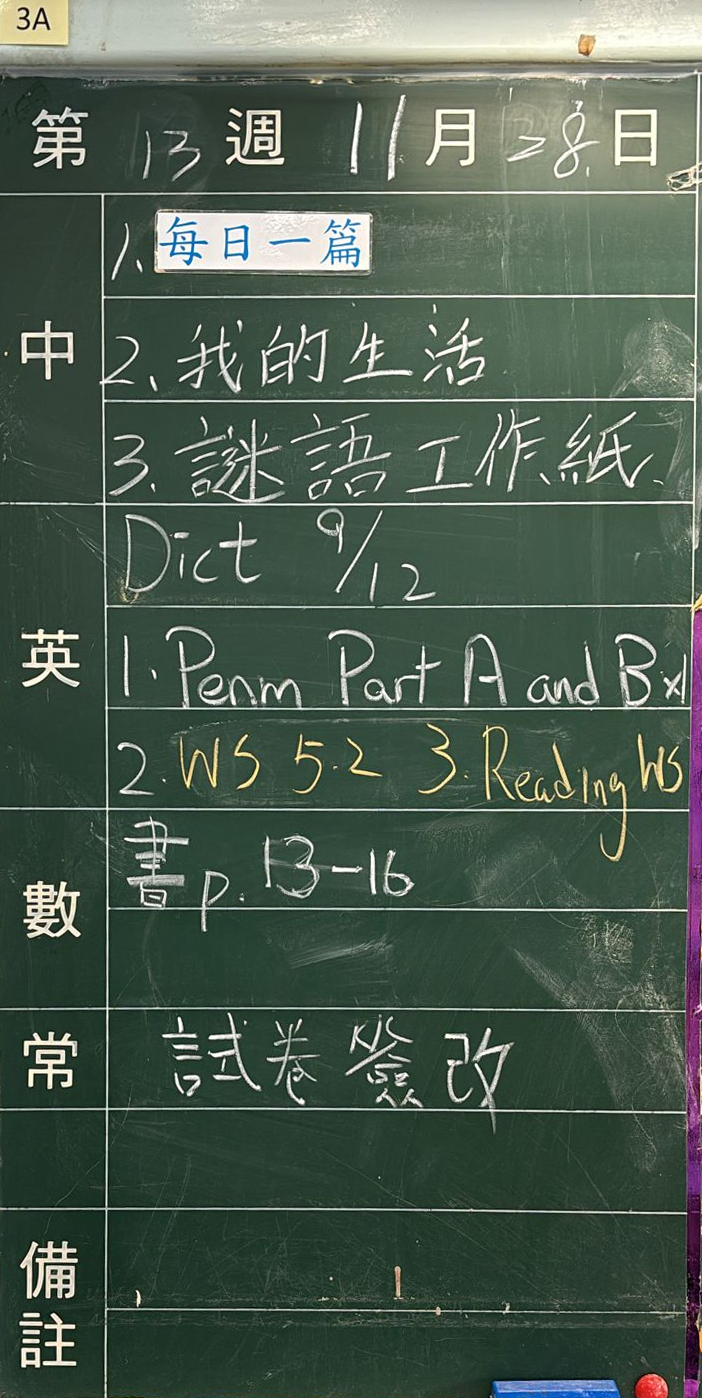 3A
第 13 週 11 月 28 日
中
1. 每日一篇
2、我的生活
3. 謎語工作紙.
英
Dict 9/12
1. Penm Part A and B x1
2. WS 5.2 3. Reading WS
數
書 p. 13-16
常
試卷簽改
備註